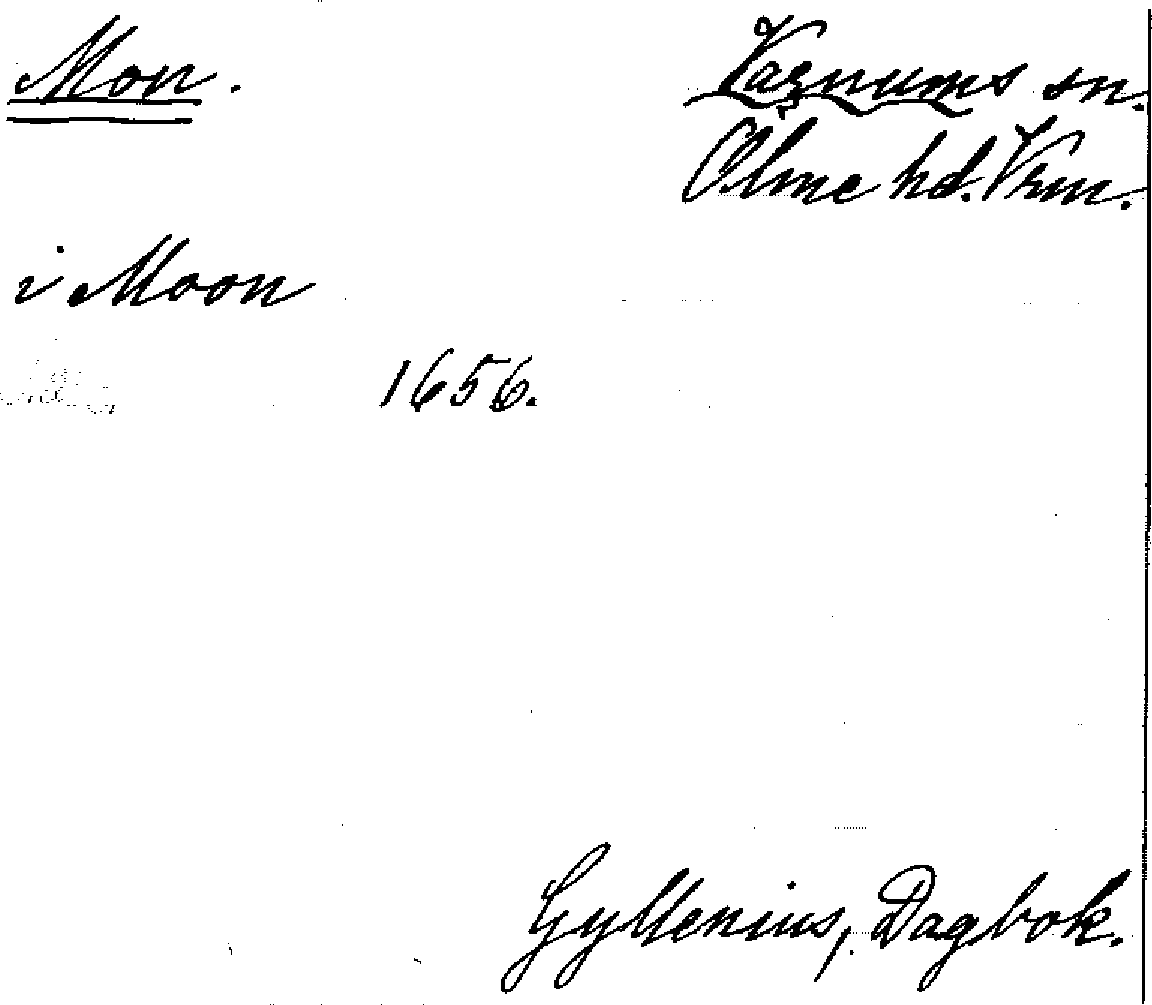 Mon.
Varnums sn.
Ölme hd. Vrm.
i Moon
1656.
Gyllenius, Dagbok.